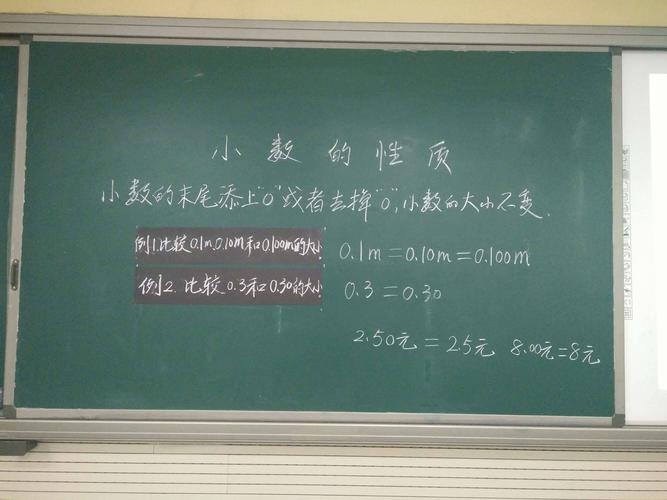 小数的性质
小数的末尾添上"0"或者去掉"0",小数的大小不变.
例1.比较0.1m,0.10m和0.100m的大小
0.1m=0.10m=0.100m
例2.比较0.3和0.30的大小
0.3=0.30
2.50元=2.5元 8.00元=8元